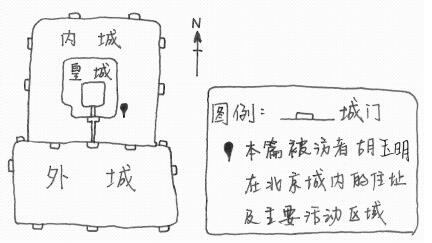 内 城
皇 城
外 城
N
图例： 城门
本篇被访者胡玉明
在北京城内的住址
及主要活动区域